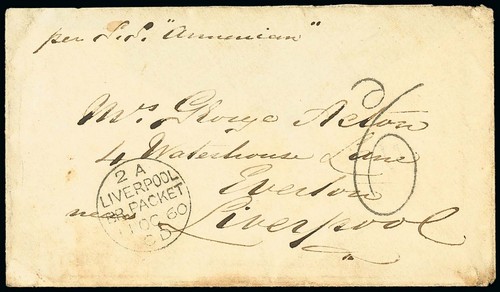 per S.S. "Armenian"
Mrs George Acton
4 Waterhouse Lane
Everton
near Liverpool
6
2 A
LIVERPOOL
BR. PACKET
1 OC 60